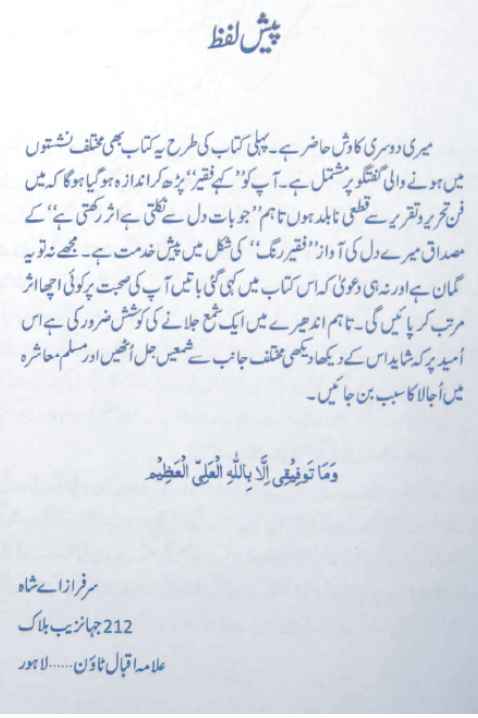 پیش لفظ
میری دوسری کاوش حاضر ہے۔ پہلی کتاب کی طرح یہ کتاب بھی مختلف نشستوں
میں ہونے والی گفتگو پر مشتمل ہے۔ آپ کو ”کہے فقیر“ پڑھ کر اندازہ ہو گیا ہو گا کہ میں
فن تحریر و تقریر سے قطعی نابلد ہوں تاہم ”جو بات دل سے نکلتی ہے اثر رکھتی ہے“ کے
مصداق میرے دل کی آواز ”فقیر رنگ“ کی شکل میں پیش خدمت ہے۔ مجھے نہ تو یہ
گمان ہے اور نہ ہی دعویٰ کہ اس کتاب میں کہی گئی باتیں آپ کی صحبت پر کوئی اچھا اثر
مرتب کر پائیں گی۔ تاہم اندھیرے میں ایک شمع جلانے کی کوشش ضرور کی ہے اس
اُمید پر کہ شاید اس کے دیکھا دیکھی مختلف جانب سے شمعیں جل اُٹھیں اور مسلم معاشرہ
میں اُجالا کا سبب بن جائیں۔
وَمَا تَوفِیْقِی اِلَّا بِاللّٰہِ الْعَلِیِّ الْعَظِیْم
سرفراز اے شاہ
212 جہانزیب بلاک
علامہ اقبال ٹاؤن......لاہور